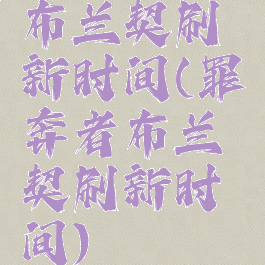 布兰契刷
新时间(罪
奔者布兰
契刷新时
间)